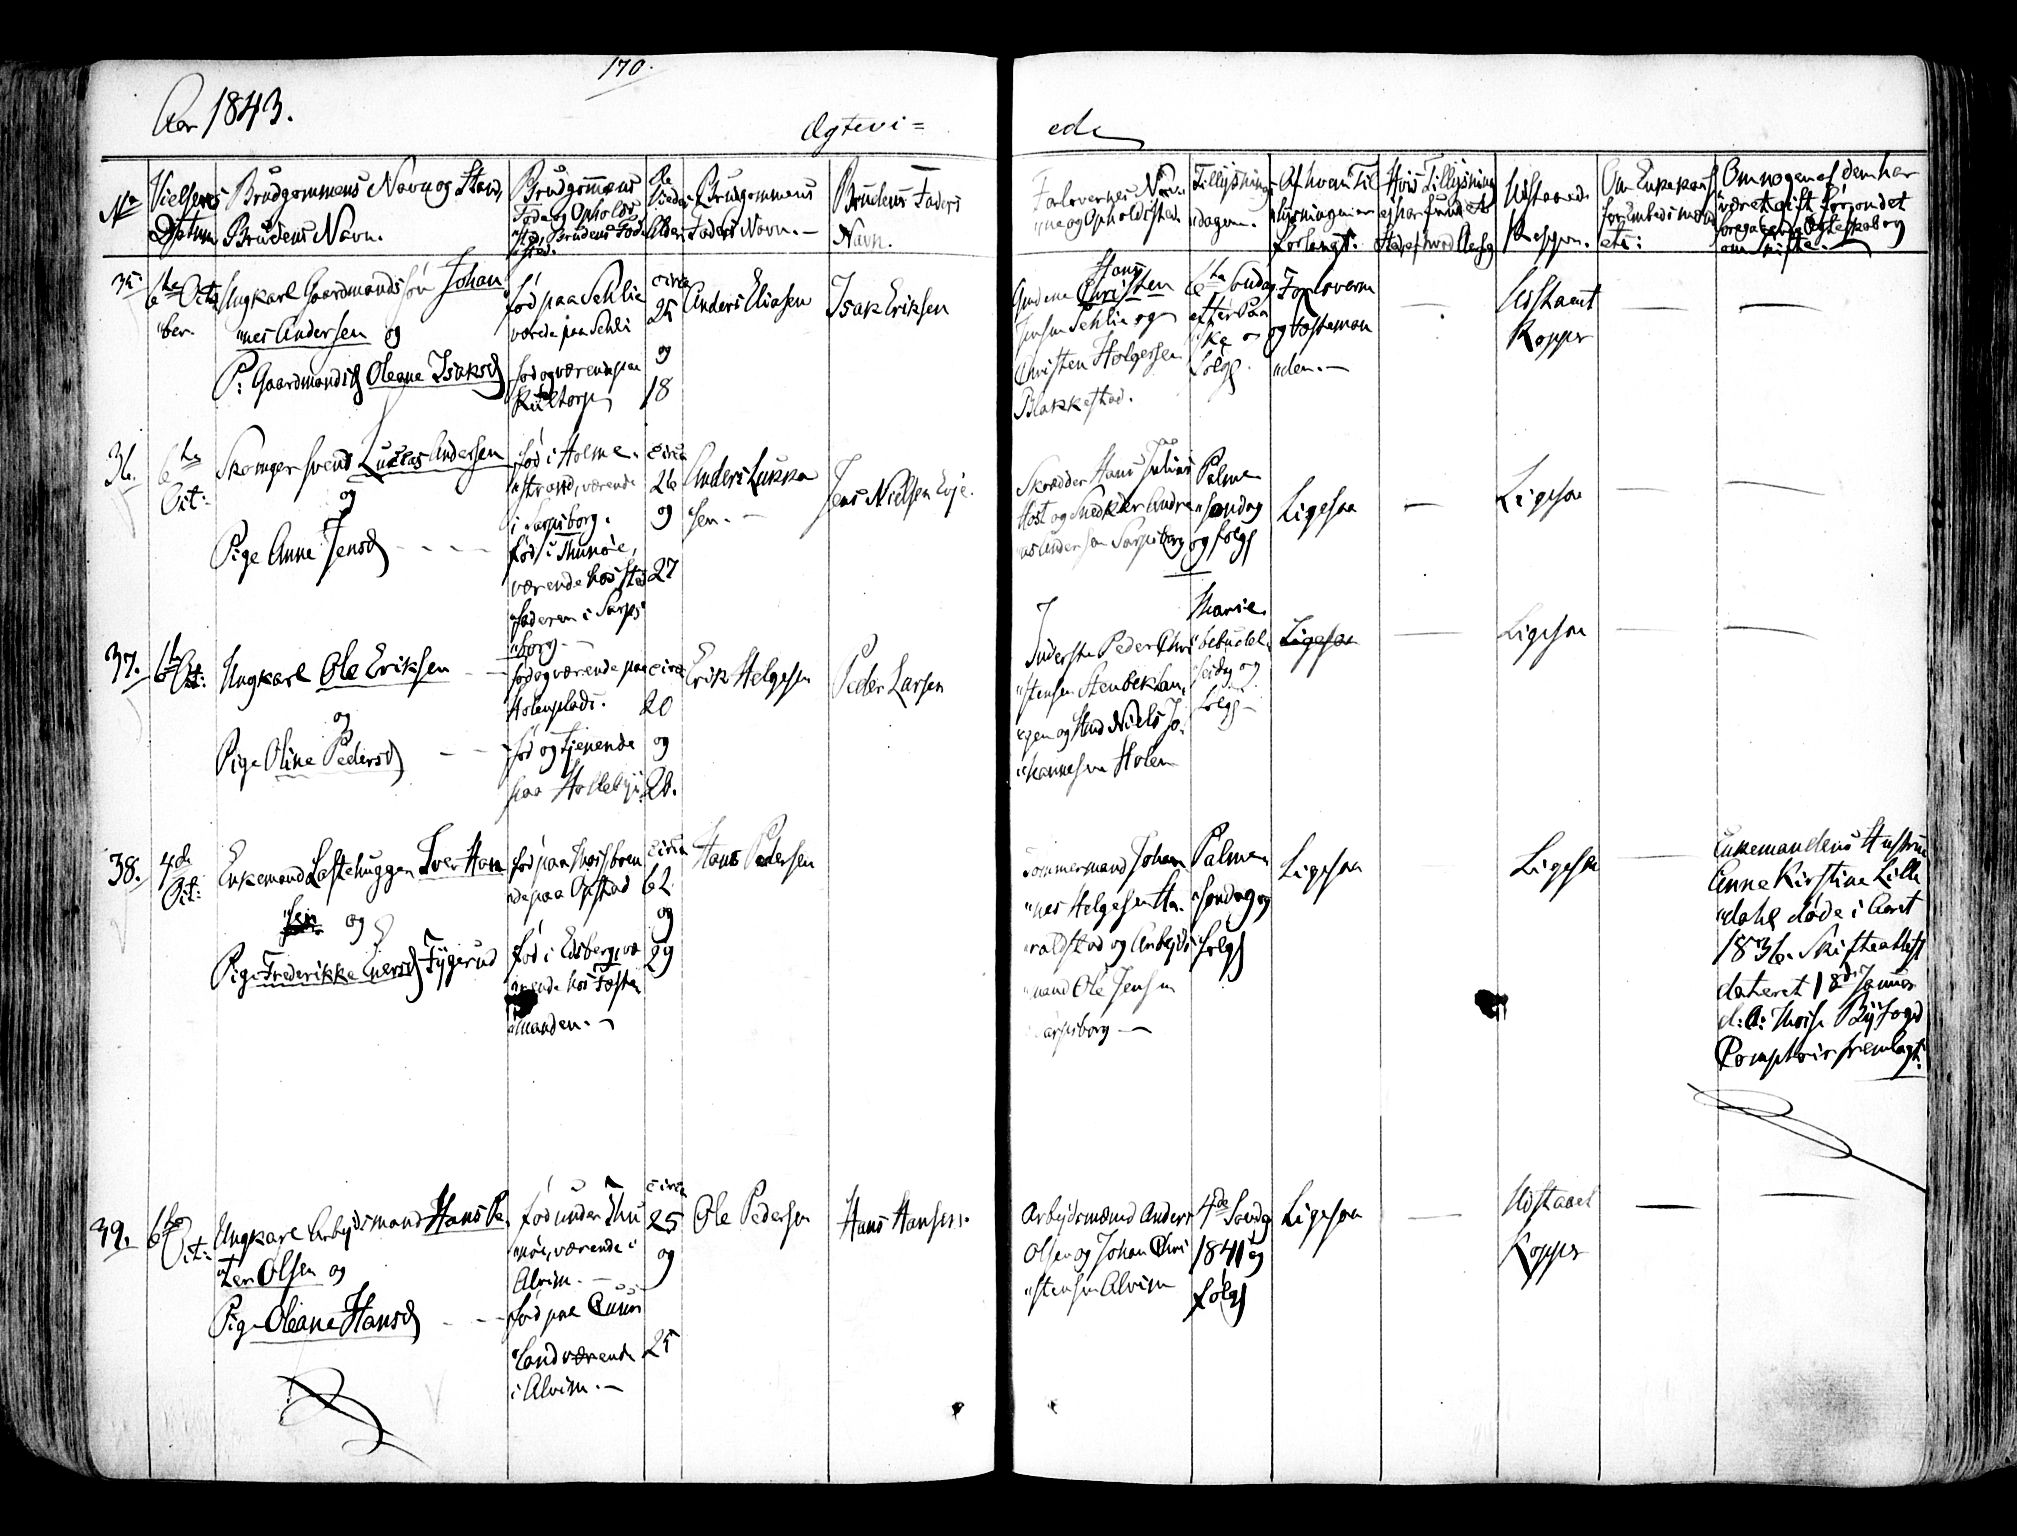 170.
Aar 1843.
Ægtevi=
ede
No
Vielsens Datum
Brudgommens Navn og Stand,
Brudens Navn.
Brudgommens
Føde og Opholds
sted, Brudens Føde
sted.
De
Viedes
Alder
Brudgommens
Faders Navn. –
Brudens Faders
Navn.
Forlovernes Nav
ne og Opholdssted
Tillysnings
dagen.
Af hvem Til
lysningen er
forlangt.
Hvis Tillysning
ei har fundet
Sted, af hvad Aarsag
Udstaaede
Kopper.
Om Enkekasse
for Embedsmænd
etc:
Om nogen af dem har
været gift før, om det
foregaaende Ægteskab og
om Skifte. –
35
6te Octo
"ber.
Ungkarl Gaardmandssøn Johan
"nes Andersen og
P: Gaardmandsd Oleane Isaksd
fød paa Sehlie
værede paa Sehli
fød og værende paa
circa
25
og
18
Anders Eliasen
Isak Eriksen
Hans
Christen
Jensen Sehlie og
Christen Holgersen
Blakkestad.
6te Søndag
efter Paa
ske og
følgd.
Forloverne
og Fosteman
"den. –
–
Udstaaet
Kopper
–
–
36.
6te
Oct:
Skomagersvend Lucas Andersen
og
Pige Anne Jensd - - - -
fød i Holme
"strand, værende
i Sarpsborg.
fød i Thunøe,
værende hos Sted
"faderen i Sarps
"borg. –
circa
26
og
27
Anders Lukka
"sen. –
Jens Nielsen Evje.
Skrædder Hans Julius
Høst og Snedker Andre
"as Andersen Sarpsborg
Palme
"søndag
og følgd
Ligesaa
–
Ligesaa
–
–
37.
6te Oct:
Ungkarl Ole Eriksen
og
Pige Oline Pedersd
fød og værende paa
Holenplads.
fød og tjenende
paa Hollebye
circa
20
og
26.
Erik Helgesen
Peder Larsen
Inderste Peder Chri
"stensen Stenbeklan
"gen og Niels Jo
"hannesen Holen
Mariæ
bebudel
"sesdag og
følgd –
Ligesaa
–
Ligesaa
–
–
38.
4de
Oct:
Enkemand Lastehugger Iver Han
"sen og
Pige Frederikke Eversd Tygerud
fød paa
paa Opstad
fød i Edsberg, væ
"rende hos Foste
"manden. –
circa
62
og
29
Hans Pedersen
Tømmermand Johan
"nes Helgesen Ha
"raldstad og Arbeids
"mand Ole Jensen
Sarpsborg –
Palme
"søndag og
følgd
Ligesaa
Ligesaa
–
Enkemandens Hustrue
Anne Kirstine Lille
"dahl døde i Aaret
1836. Skifteattest
dateret 18de Januar
d: A: Moss Byfoged
Comptoir fremlagt.
39.
6te
Oct:
Ungkarl Arbeidsmand Hans Pe
"ter Olsen og
Pige Oleane Hansd - - -
fød under Thu
"nøe, værende i
Alvim. –
fød paa
"land værende
i Alvim. –
circa
25
og
25
Ole Pedersen
Hans Hansen.
Arbeidsmænd Anders
Olsen og Johan Chri
"stensen Alvim
4de Søndg
1841 og
følgd
Ligesaa
–
Udstaaet
Kopper
–
–